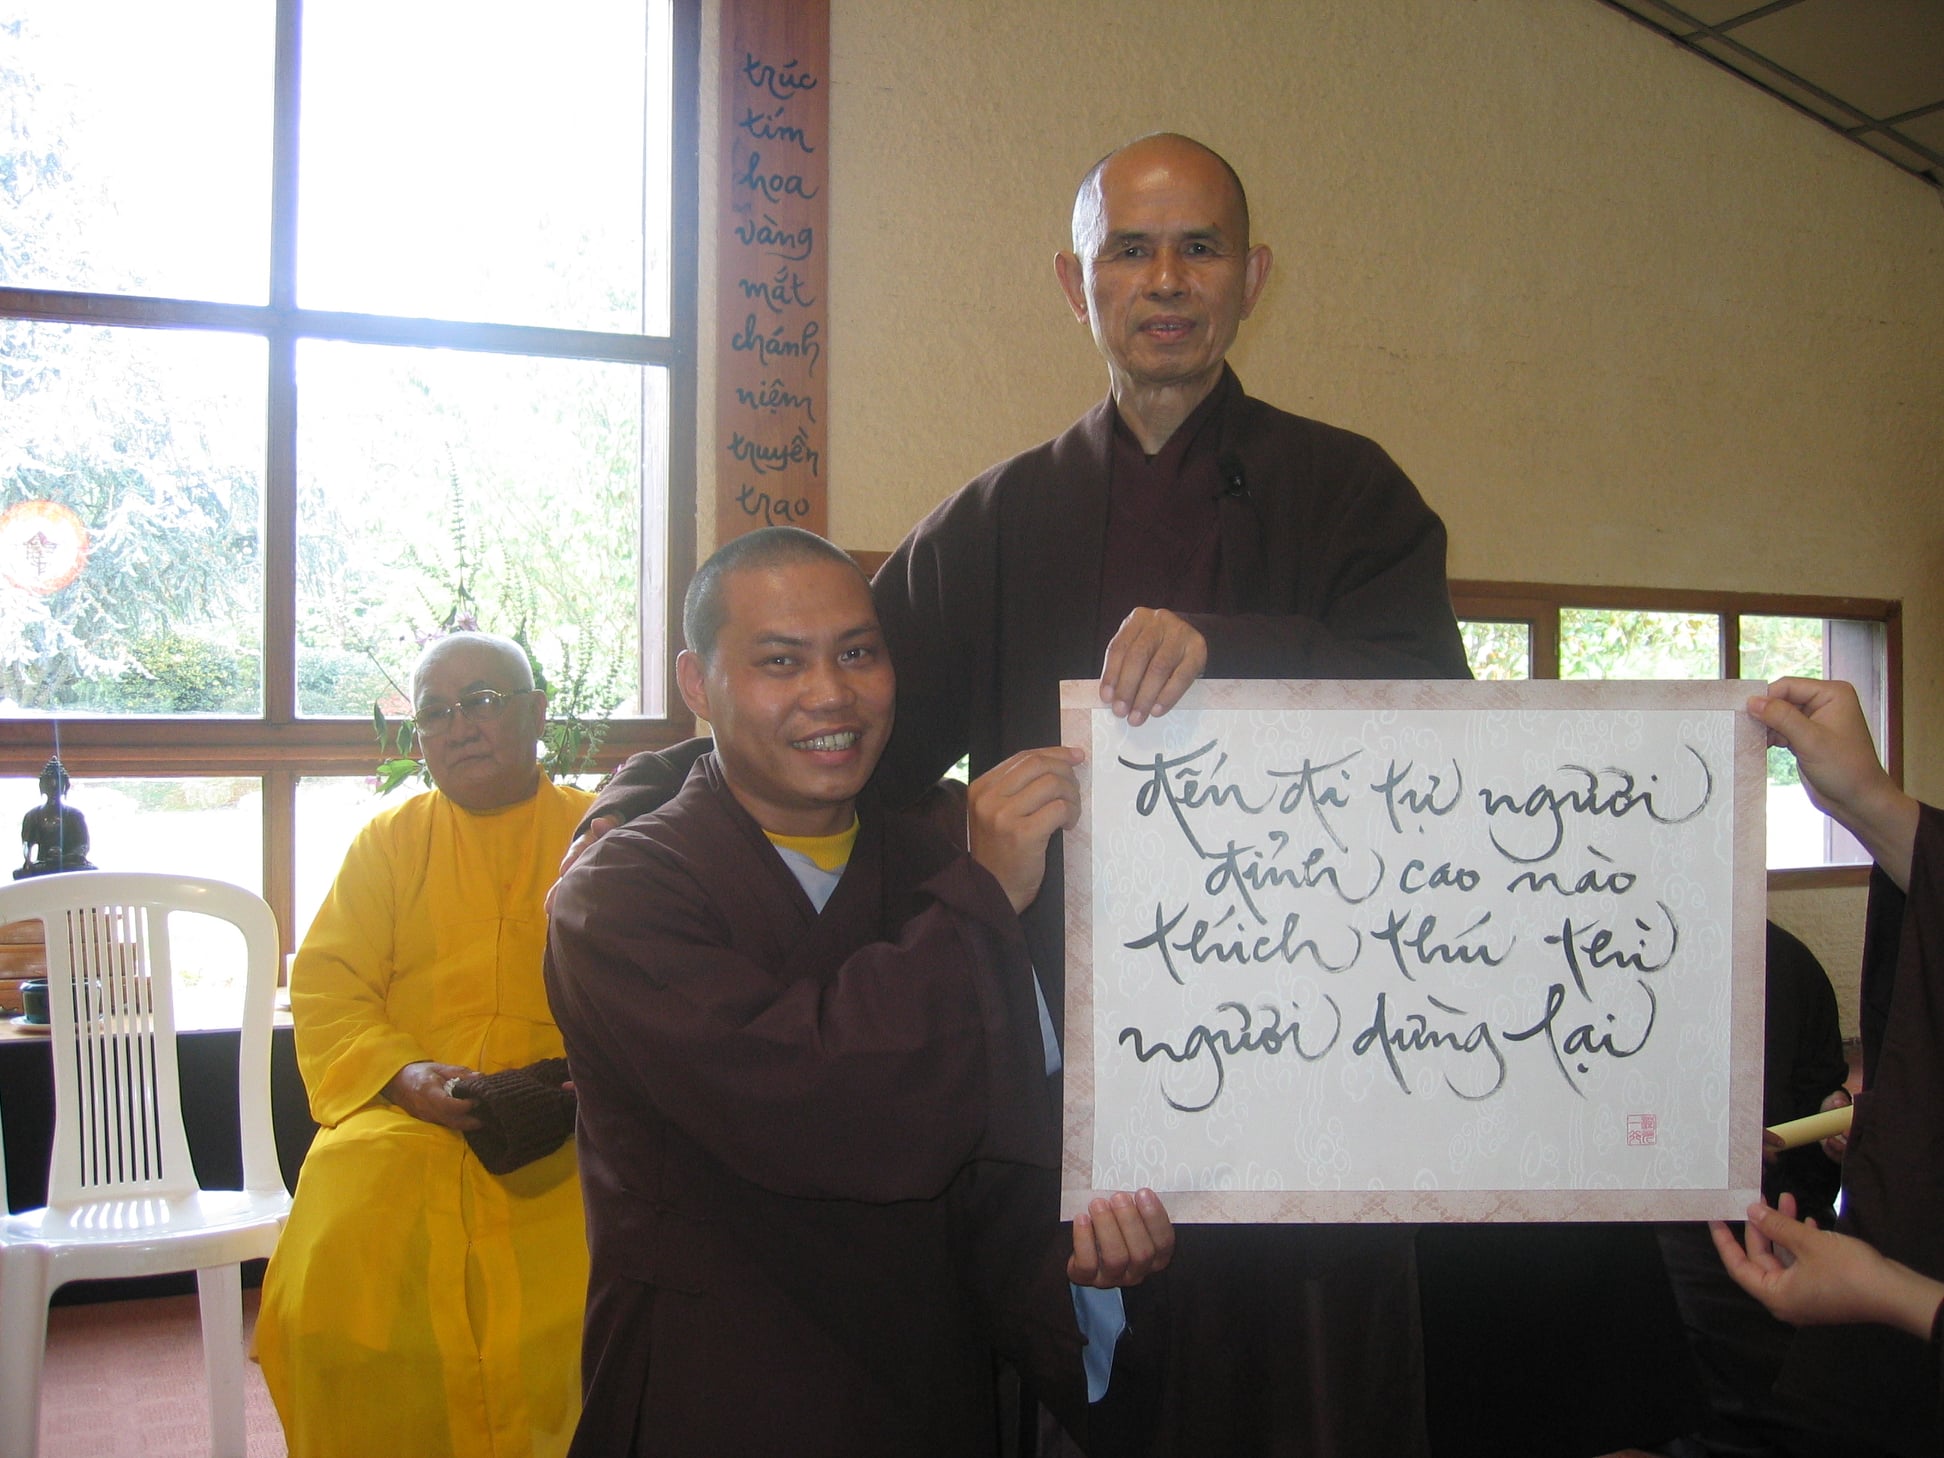 trúc
tím
hoa
vàng
mắt
chánh
niệm
truyền
trao
đến đi tự người
đỉnh cao nào
thích thú thì
người dừng lại